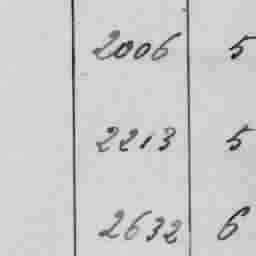 2006 5
2213 5
2632 6